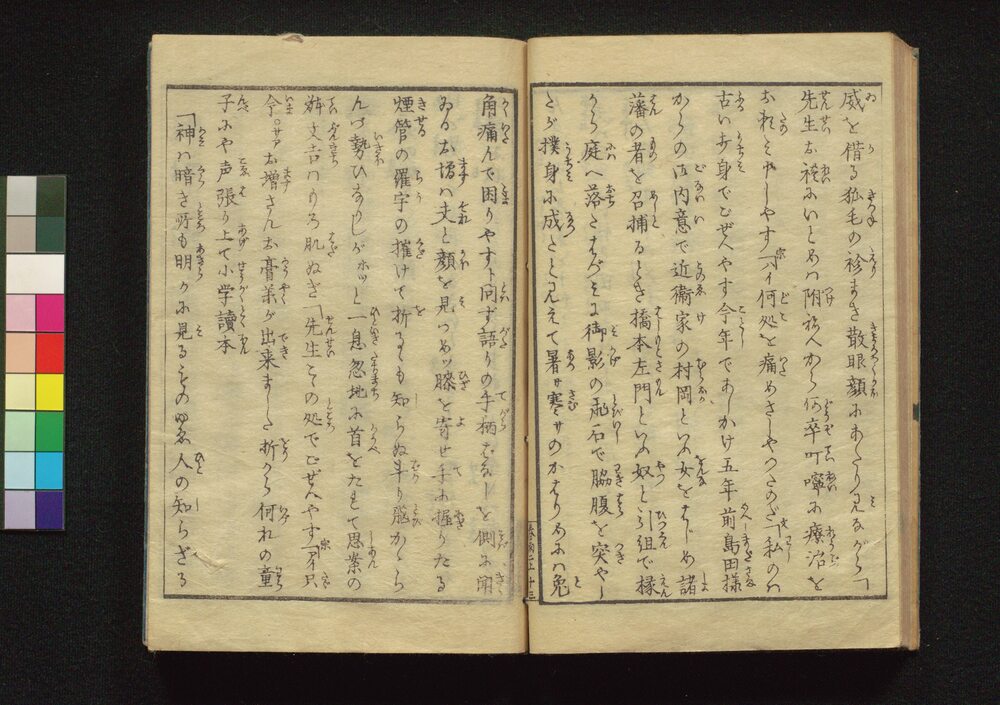 威を借る狐毛の衿まき散眼顔にあたり見ながら「
先生お禮にいとめは附祢へから何卒叮嚀に療治を
お頼みやしやす「ハイ何処を痛めさしやつたのだ「私のハ
古い歩身でムぜへやす今年であしかけ五年前島田様
からの御内意で近衛家の村岡といふ女をはじめ諸
藩の者を召捕るとき橋本左門といふ奴と引組で椽
から庭へ落たはづみに御影の飛石で脇腹を突やし
たが撲身に成たと見えて暑サ寒サのかはりめにハ兎
角痛んで困りやすト問ず語りの手柄はなしを側に聞
ゐるお増ハ夫と顔を見つめツ膝を寄せ手に握りたる
煙管の羅宇の摧けて折るも知らぬ斗り飛かゝら
んず勢ひなりしがホツと一息忽地に首をたれて思案の
躰文吉ハもろ肌ぬぎ「先生こゝの処でムぜへやす「ヲイ只
今。サアお増さんお膏薬が出来ました折から何れの童
子にや声張り上て小学讀本
「神ハ暗き所も明かに見るものゆゑ人の知らざる